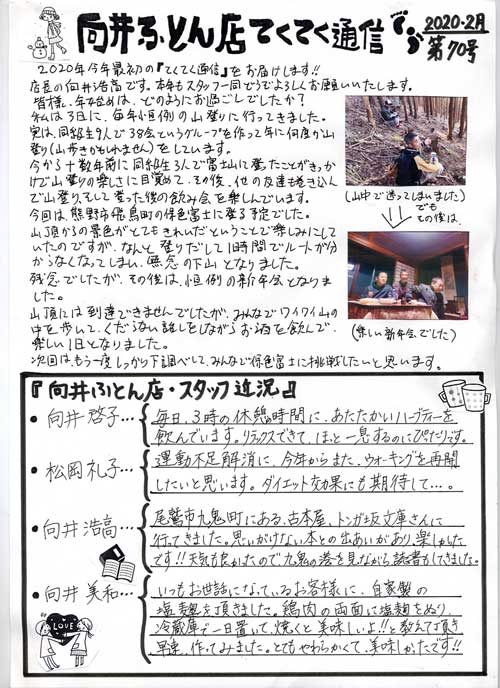 向井ふとん店てくてく通信
2020・2月
第70号
2020年今年最初の『てくてく通信』をお届けします!!
店長の向井浩高です。本年もスタッフ一同どうぞよろしくお願いいたします。
皆様、年始めは、どのようにお過ごしでしたか?
私は3日に、毎年恒例の山登りに行ってきました。
実は、同級生9人で38会というグループを作って年に何度か山
登り(山歩きかもしれません)をしています。
今から十数年前に同級生3人で富士山に登ったことがきっか
けで山登りの楽しさに目覚めて、その後、他の友達も巻き込ん
で山登り、そして登った後の飲み会を楽しんでいます。
今回は、熊野市飛鳥町の保色富士に登る予定でした。
山頂からの景色がとてもきれいだということで楽しみにして
いたのですが、なんと登りだして1時間でルートが分
からなくなってしまい、無念の下山となりました。
残念でしたが、その後は、恒例の新年会となりま
した。
山頂には到達できませんでしたが、みんなでワイワイ山の
中を歩いて、くだらない話しをしながらお酒を飲んで、
楽しい1日となりました。
次回は、もう一度しっかり下調べして、みんなで保色富士に挑戦したいと思います。
(山中で迷ってしまいました)
でも
その後は、
(楽しい新年会でした)
『向井ふとん店・スタッフ近況』
・向井啓子…
毎日、3時の休憩時間に、あたたかいハーブティーを
飲んでいます。リラックスできて、ほっと一息するのにぴったりです。
・松岡礼子…
運動不足解消に、今年からまた、ウォーキングを再開
したいと思います。ダイエット効果にも期待して…。
・向井浩高…
尾鷲市九鬼町にある、古本屋、トンガ坂文庫さんに
行ってきました。思いがけない本との出あいがあり、楽しかった
です!!天気も良かったので九鬼の港を見ながら読書もしてきました。
・向井美和…
いつもお世話になっているお客様に、自家製の
塩麹を頂きました。鶏肉の両面に塩麹をぬり、
冷蔵庫で一日置いて、焼くと美味しいよ!!と教えて頂き
早速、作ってみました。とてもやわらかくて、美味しかったです!!
LOVE